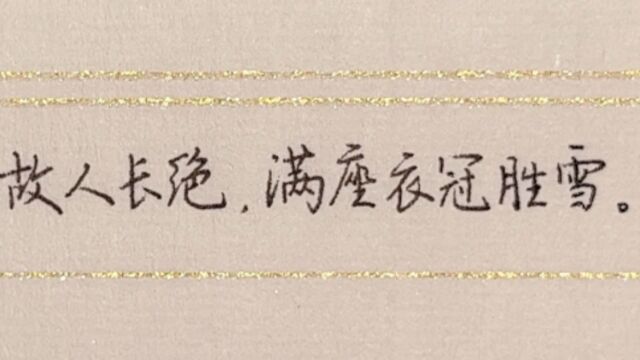 故人长绝,满座衣冠胜雪。